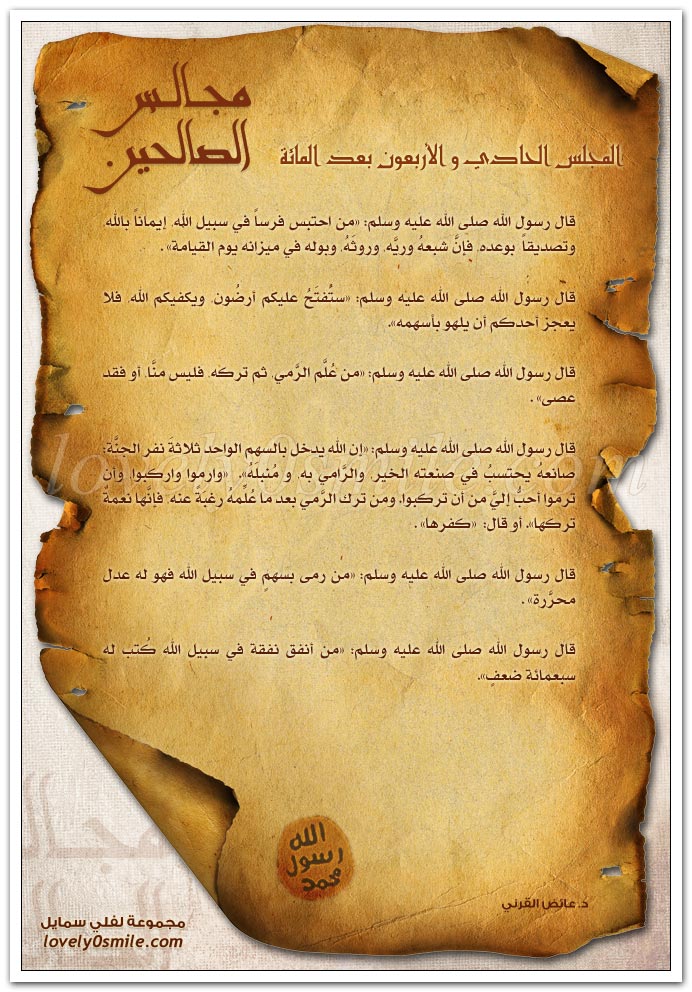 مجالس
الصالحين
المجلس الحادي و الأربعون بعد المائة
قال رسول الله صلى الله عليه وسلم: «من احتبس فرساً في سبيل الله، إيماناً بالله
وتصديقاً بوعده، فإنَّ شبعهُ وريَّه، وروثَهُ، وبوله في ميزانه يوم القيامة» .
قال رسول الله صلى الله عليه وسلم: «ستُفتَحُ عليكم أرضُون، ويكفيكم الله، فلا
يعجز أحدكم أن يلهو بأسهمه».
قال رسول الله صلى الله عليه وسلم: «من عُلَّم الرَّمي، ثم تركه، فليس منَّا، أو فقد
عصى» .
قال رسول الله صلى الله عليه وسلم: «إن الله يدخل بالسهم الواحد ثلاثة نفر الجنَّة:
صانعه يحتسبُ في صنعته الخير، والرَّامي به، و مُنبلهُ»، «وارموا واركبوا، وأن
ترموا أحبُّ إليَّ من أن تركبوا، ومن ترك الرَّمي بعد ما عُلِّمهُ رغبةً عنه، فإنَّها نعمةٌ
تركها»، أو قال: «كفرها» .
قال رسول الله صلى الله عليه وسلم: «من رمى بسهمٍ في سبيل الله فهو له عدل
محرَّرة» .
قال رسول الله صلى الله عليه وسلم: «من أنفق نفقة في سبيل الله كُتب له
سبعمائة ضعفٍ».
الله
رسول
محمد
د. عائض القرني
مجموعة لفلي سمايل
lovely0smile.com
lovely0smile.com